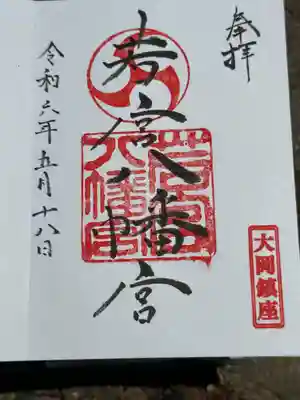 奉拝
若宮八幡宮
若宮
八幡宮
大岡鎮座
令和六年五月十八日